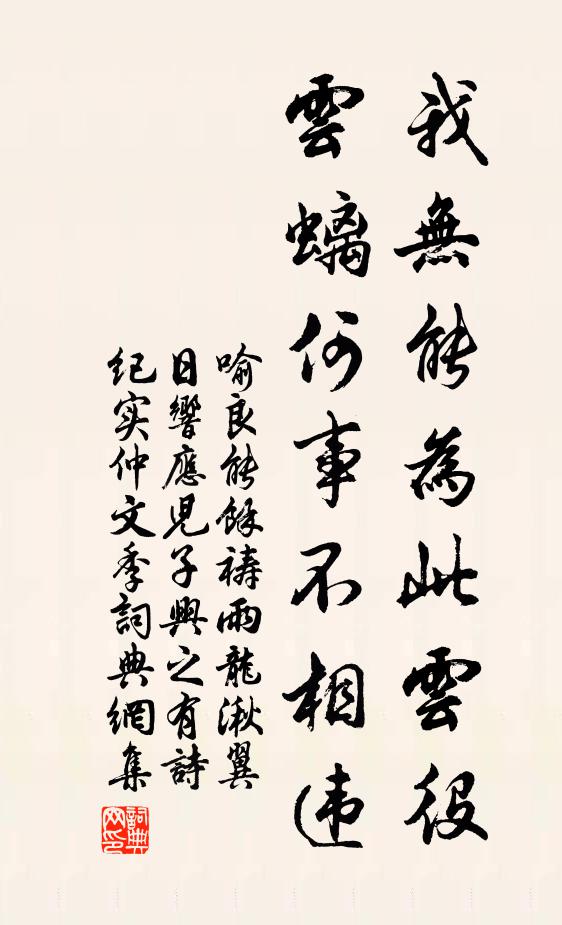 我無能為此雲役
雲螭何事不相違
喻良能餘禱雨龍湫翼
日響應児子興之有詩
纪实仲文季詞典網集
詞典
网印